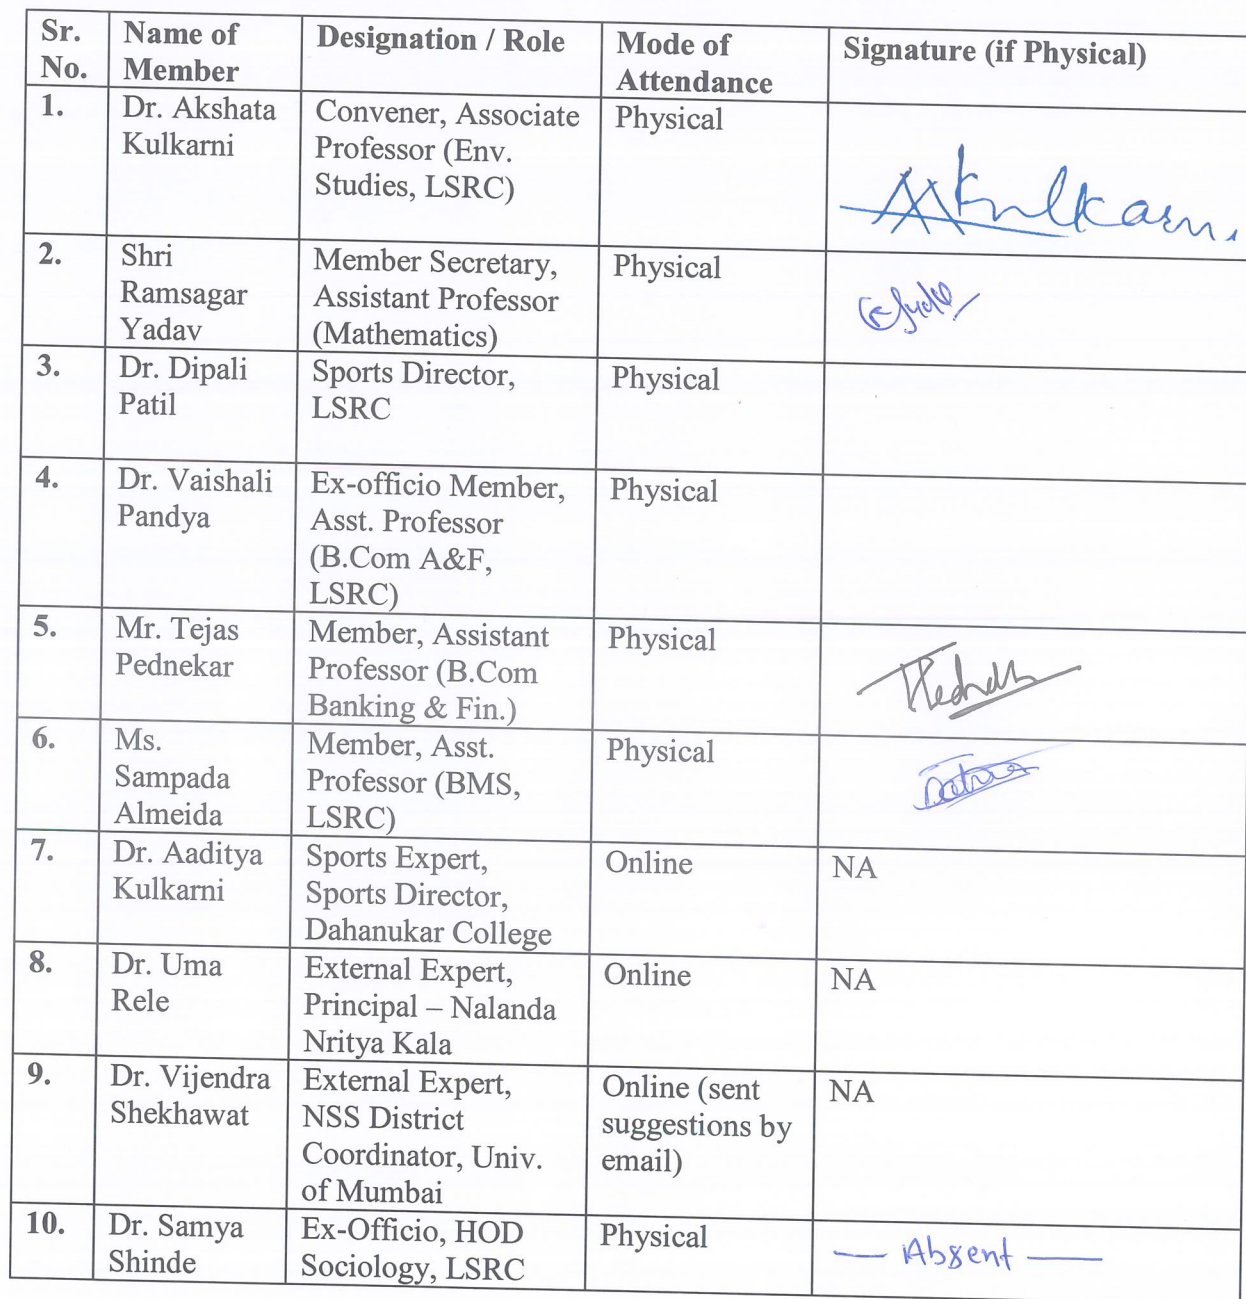 Sr. No.
Name of Member
Designation / Role
Mode of Attendance
Signature (if Physical)
1.
Dr. Akshata
Kulkarni
Convener, Associate
Professor (Env.
Studies, LSRC)
Physical
AAKulkarni
2.
Shri
Ramsagar
Yadav
Member Secretary,
Assistant Professor
(Mathematics)
Physical
3.
Dr. Dipali
Patil
Sports Director,
LSRC
Physical
4.
Dr. Vaishali
Pandya
Ex-officio Member,
Asst. Professor
(B.Com A&F,
LSRC)
Physical
5.
Mr. Tejas
Pednekar
Member, Assistant
Professor (B.Com
Banking & Fin.)
Physical
6.
Ms.
Sampada
Almeida
Member, Asst.
Professor (BMS,
LSRC)
Physical
7.
Dr. Aaditya
Kulkarni
Sports Expert,
Sports Director,
Dahanukar College
Online
NA
8.
Dr. Uma
Rele
External Expert,
Principal – Nalanda
Nritya Kala
Online
NA
9.
Dr. Vijendra
Shekhawat
External Expert,
NSS District
Coordinator, Univ.
of Mumbai
Online (sent
suggestions by
email)
NA
10.
Dr. Samya
Shinde
Ex-Officio, HOD
Sociology, LSRC
Physical
— Absent —